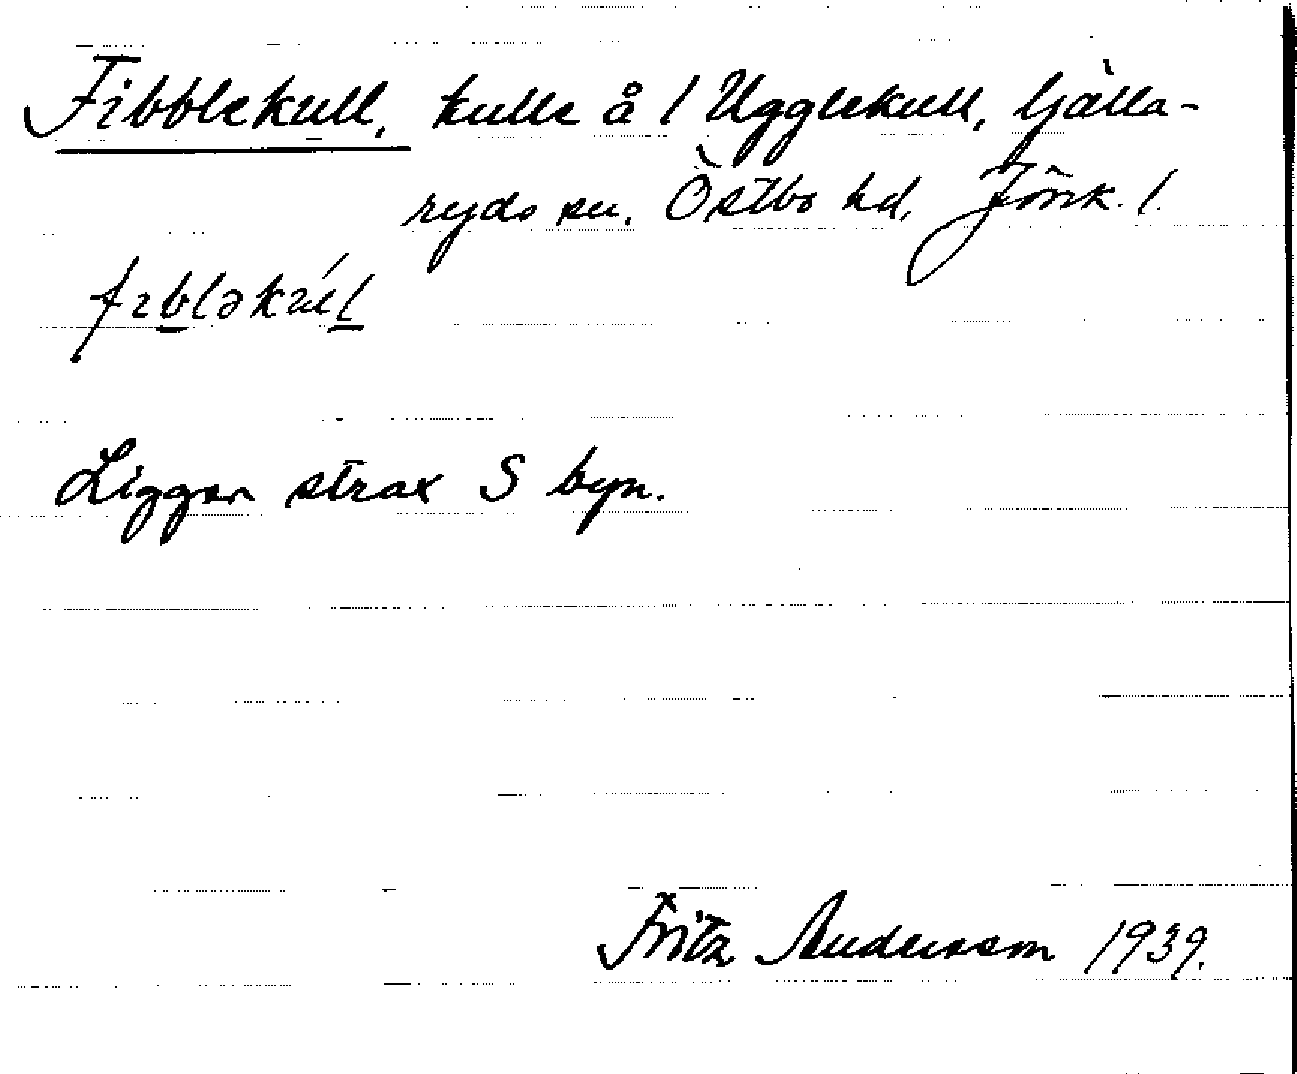 Fibblekull, kulle å 1 Ugglekull, Gälla-
ryds sn. Östbo hd, Jönk. l.
Liggar strax S byn.
Fritz Andersson 1939.